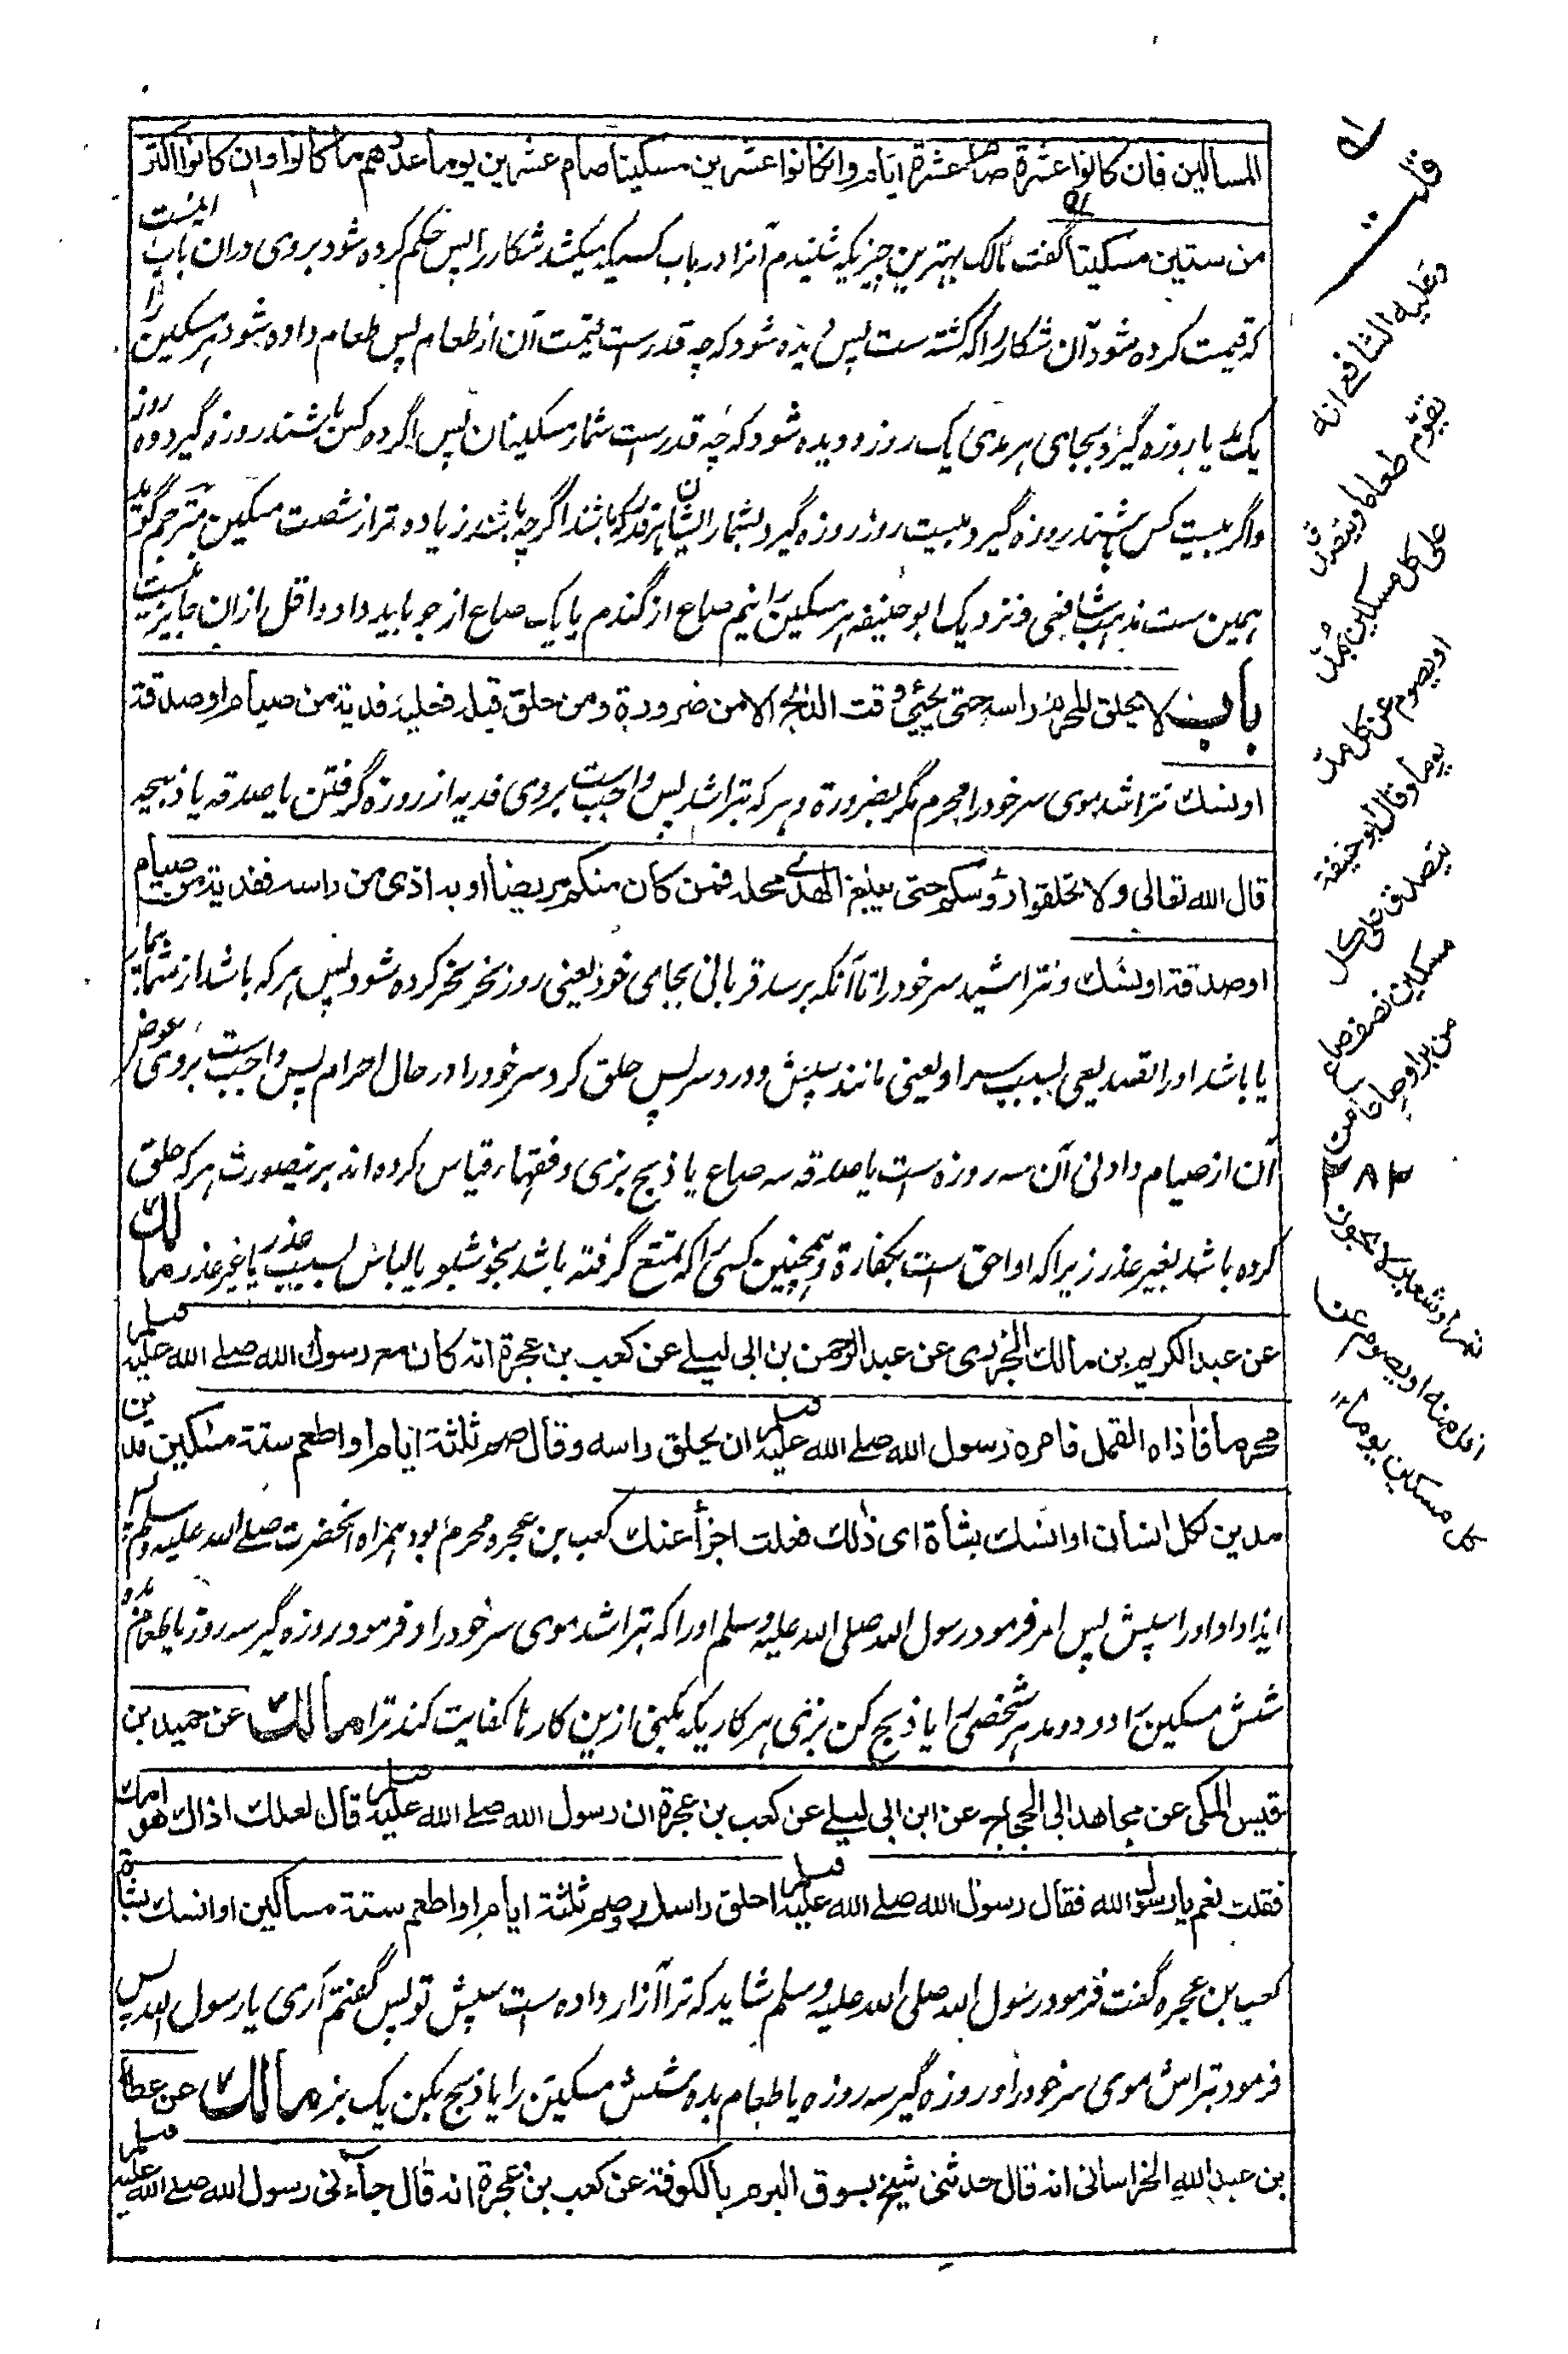 المساكين فان كانوا عشرة صام عشرة ايام وان كانوا عشرين مسكينا صام عشرين يوما عددهم ما كانوا وان كانوا اكثر
من ستين مسكينا گفت مالك بهترين چيزيكه شنيدم آنرا در باب كسيكه ميكشد شكار را پس حكم كرده شود بروى دران باب اينست
كه قيمت كرده شود آن شكار را كه كشته ست پس ديده شود كه چه قدر ست قيمت آن از طعام پس طعام داده شود هر مسكين را
يك مد يا روزه گيرد بجاى هر مدى يك روزه و ديده شود كه چه قدر ست شمار مسكينان پس اگر ده كس باشند روزه گيرد ده روز
واگر بيست كس باشند روزه گيرد بيست روز روزه گيرد بشمار ايشان هر قدر كه باشند اگرچه باشند زياده تر از شصت مسكين مترجم گويد
همين ست مذهب شافعى و نزديك ابو حنيفه هر مسكين را نيم صاع از گندم يا يك صاع از جو بايد داد و اقل ازان جايز نيست
باب لا يحلق المحرم راسه حتى يجيئ وقت النحر الا من ضرورة ومن حلق قبله فعليه فدية من صيام او صدقة
او نسك نتراشد موى سر خود را محرم مگر بضرورة و هر كه بتراشد پس واجب است بروى فديه از روزه گرفتن يا صدقه يا ذبيحه
قال الله تعالى ولا تحلقوا رؤسكم حتى يبلغ الهدى محله فمن كان منكم مريضا او به اذى من راسه ففدية من صيام
او صدقة او نسك و نتراشيد سر خود را تا آنكه برسد قربانى بجاى خود يعنى روز نحر نحر كرده شود پس هر كه باشد از شما بيمار
يا باشد او را تصديعى بسبب سر او يعنى مانند سپش و درد سر پس حلق كرد سر خود را در حال احرام پس واجب ست بروى عوض
آن از صيام و ادنى آن سه روزه ست يا صدقه سه صاع يا ذبح بزى و فقهاء قياس كرده اند برينصورت هر كه حلق
كرده باشد بغير عذر زيرا كه او احق ست بكفارة و همچنين كسى را كه تمتع گرفته باشد بخوشبو يا لباس بسبب عذر يا غير عذر مالك
عن عبد الكريم بن مالك الجزرى عن عبد الرحمن بن ابى ليلى عن كعب بن عجرة انه كان مع رسول الله صلى الله عليه وسلم
محرما فاذاه القمل فامره رسول الله صلى الله عليه وسلم ان يحلق راسه وقال صم ثلثة ايام او اطعم ستة مسكين مدين
مدين لكل انسان او انسك بشاة اى ذلك فعلت اجزأ عنك كعب بن عجره محرم بود همراه آنحضرت صلى الله عليه وسلم پس
ايذا داد او را سپش پس امر فرمود رسول الله صلى الله عليه وسلم او را كه بتراشد موى سر خود را و فرمود روزه گير سه روز يا طعام ده
شش مسكين را دو دو مد هر شخصى را يا ذبح كن بزى هر كاريكه بكنى ازين كارها كفايت كند ترا مالك عن حميد بن
قيس المكى عن مجاهد ابى الحجاج عن ابن ابى ليلى عن كعب بن عجرة ان رسول الله صلى الله عليه وسلم قال لعلك اذاك هوامك
فقلت نعم يا رسول الله فقال رسول الله صلى الله عليه وسلم احلق راسك وصم ثلثة ايام او اطعم ستة مساكين او انسك بشاة
كعب بن عجره گفت فرمود رسول الله صلى الله عليه وسلم شايد كه ترا آزار داده ست سپش تو پس گفتم آرى يا رسول الله پس
فرمود بتراش موى سر خود را و روزه گير سه روزه يا طعام بده شش مسكين را يا ذبح بكن يك بز مالك عن عطاء
بن عبد الله الخراسانى انه قال حدثنى شيخ بسوق البرم بالكوفة عن كعب بن عجرة انه قال جاءنى رسول الله صلى الله عليه وسلم
قلت
وعليه الشافعى انه
يقوم طعاما ويتصدق
على كل مسكين بمد
او يصوم عن كل مد
يوما وقال ابو حنيفة
يتصدق على كل
مسكين نصف صاع
من بر او صاعا من
تمر او شعير لا يجوز
اقل منه او يصوم عن
كل مسكين يوما